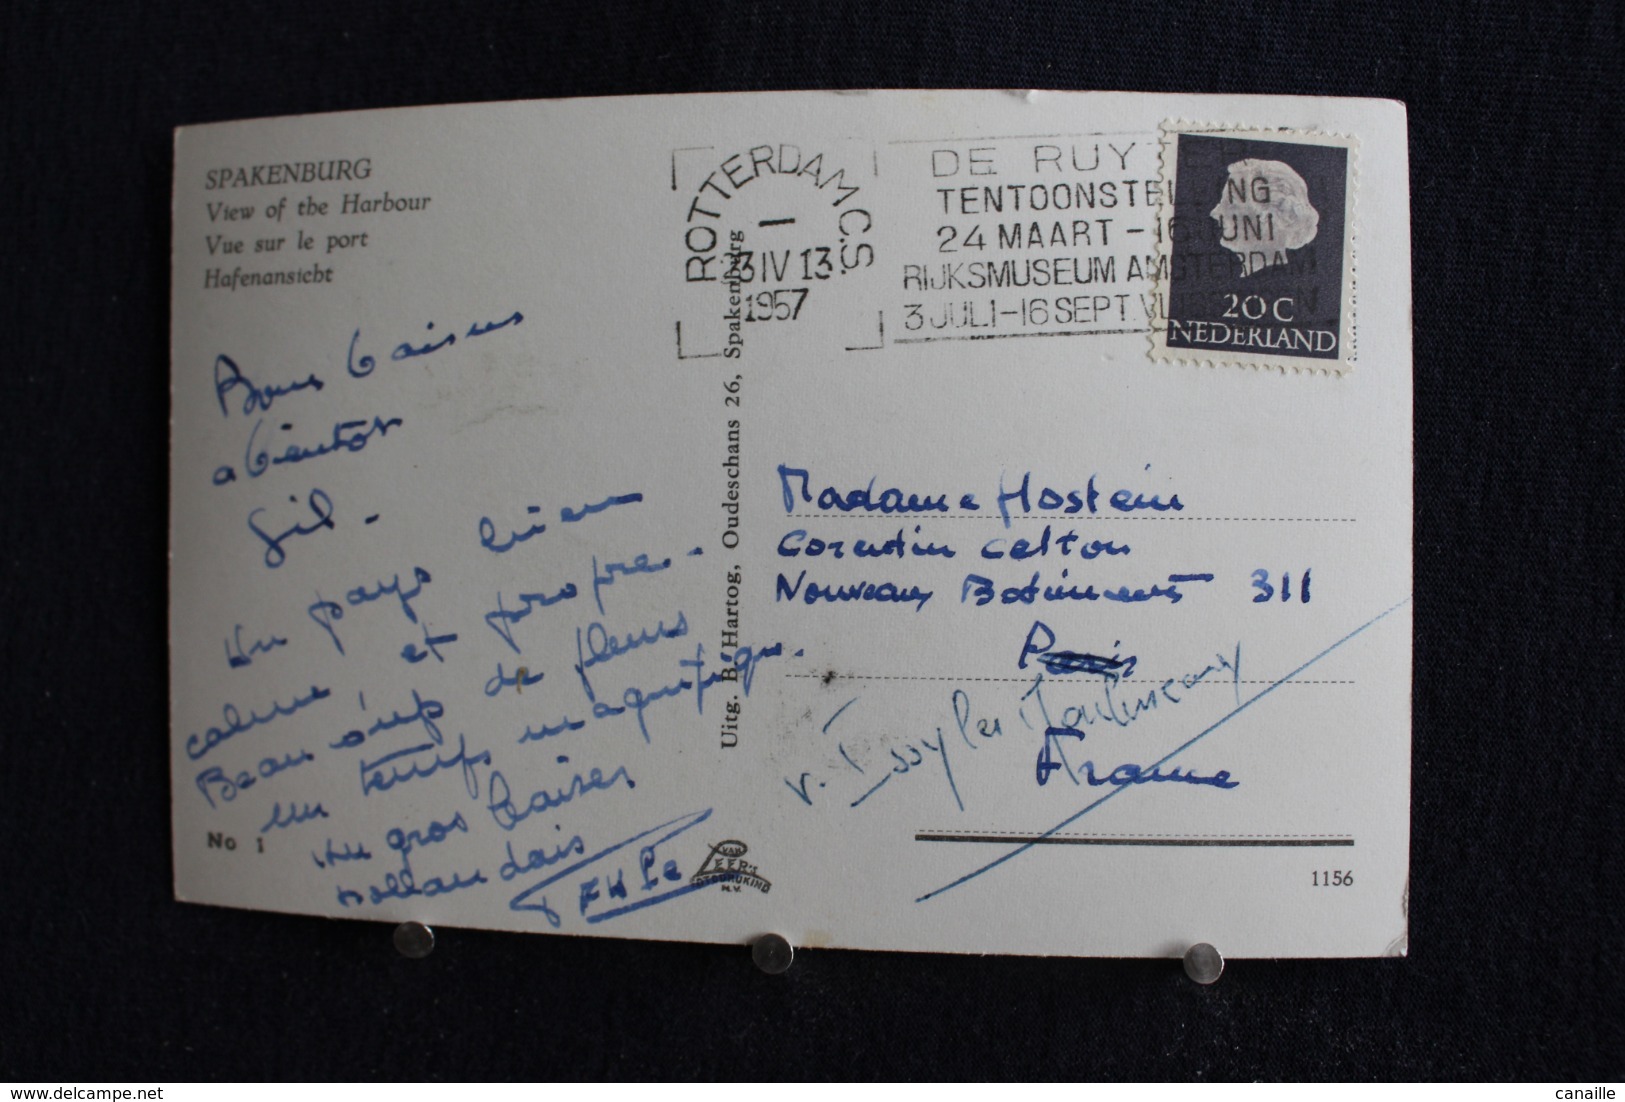 SPAKENBURG
View of the Harbour
Vue sur le port
Hafenansicht
Bons baisers
a bientôt
Gil.
Un pays bien
calme et propre.
Beaucoup de fleurs
un temps magnifique.
un gros baiser
hollandais
No 1
Uitg. B. Hartog, Oudeschans 26, Spakenburg
VAN
LEER'S
FOTODRUKIND
N.V.
ROTTERDAM C.S.
1
23 IV 13
1957
DE RUYTER
TENTOONSTELLING
24 MAART - 16 JUNI
RIJKSMUSEUM AMSTERDAM
3 JULI - 16 SEPT. VL
20 C
NEDERLAND
Madame Hostein
Corentin Celton
Nouveaux Batiments 311
Paris
Issy les Moulineaux
France
1156
delcampe.net
canaille